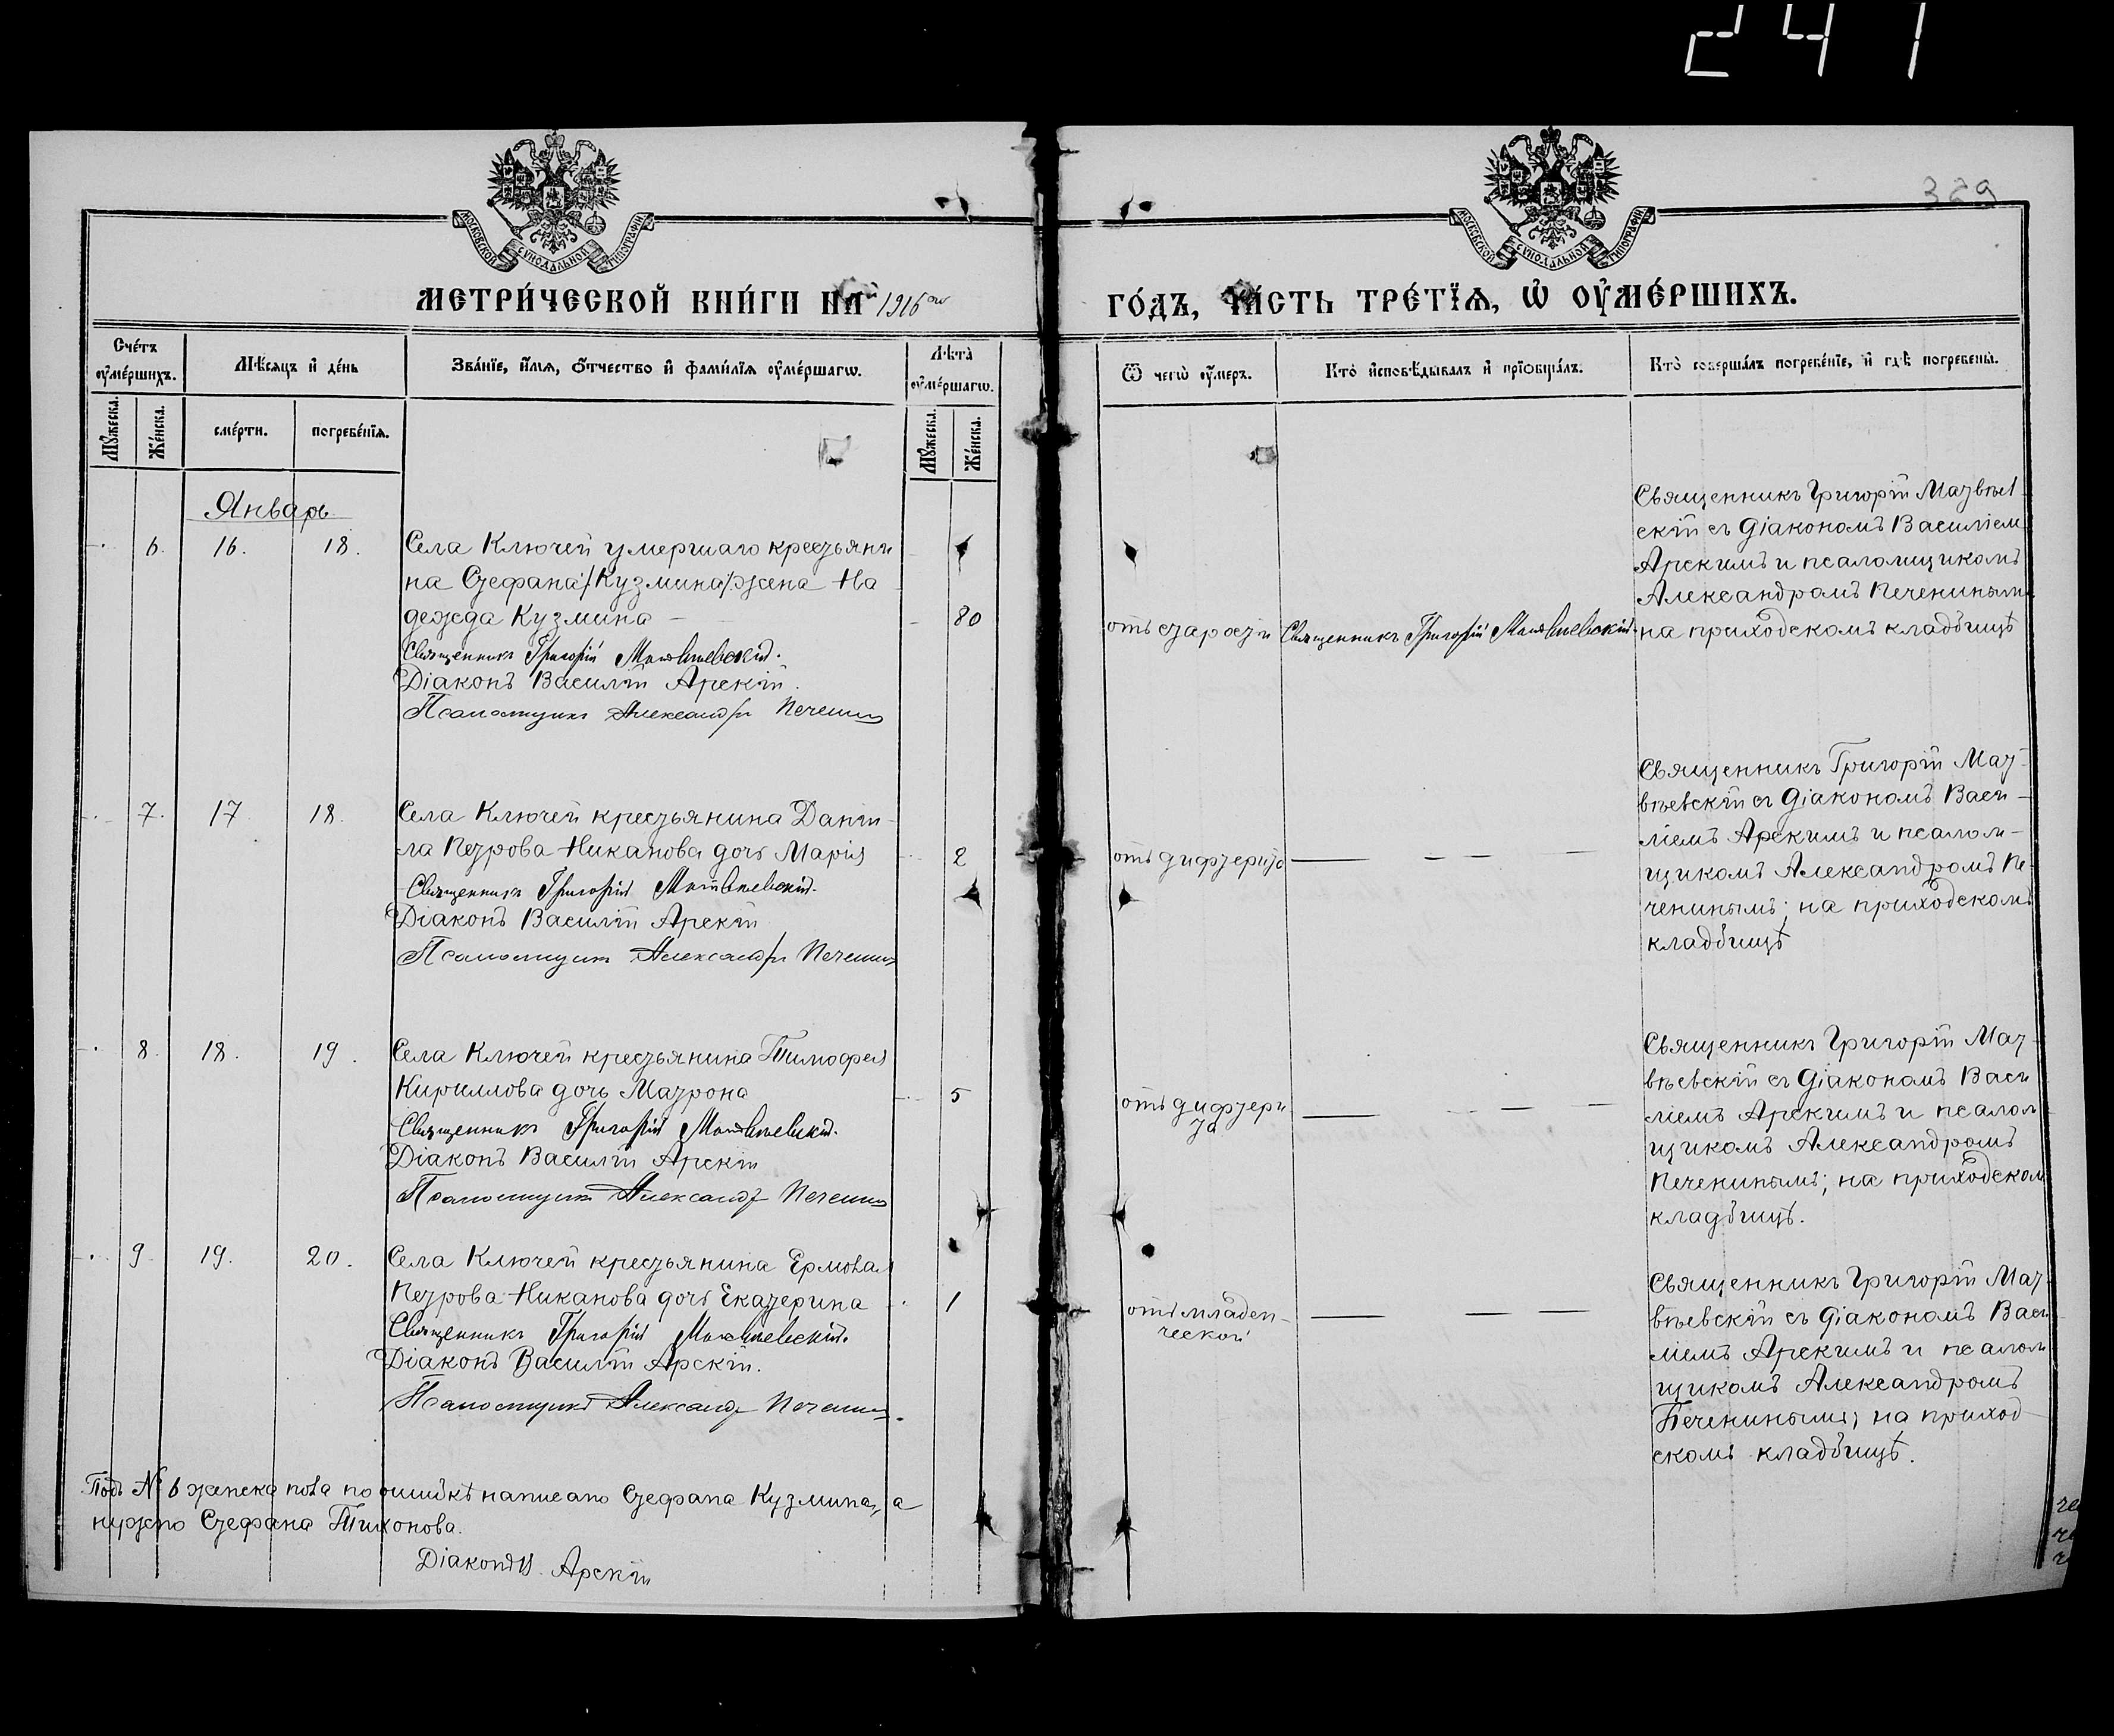 241
329
МОСКОВСКОЙ СѴНОДАЛЬНОЙ ТИПОГРАФІИ
МОСКОВСКОЙ СѴНОДАЛЬНОЙ ТИПОГРАФІИ
МЕТРИ́ЧЕСКОЙ КНИ́ГИ НА 1916 ГО́ДЪ, ЧА́СТЬ ТРЕ́ТЇѦ, Ѡ ОУ҆МЕ́РШИХЪ.
Сче́тъ оу҆ме́ршихъ.
Мѣ́сяцъ и҆ де́нь
Зва́нїе, и҆́мя, ѻ҆́тчество и҆ фами́лїя оу҆ме́ршагѡ.
Лѣ́та оу҆ме́ршагѡ.
Ѿ чегѡ̀ оу҆́меръ.
Кто̀ и҆сповѣ́дывалъ и҆ прїѡбща́лъ.
Кто̀ соверша́лъ погребе́нїе, и҆ гдѣ̀ погребены̀.
Мꙋ́жеска.
Же́нска.
сме́рти.
погребе́нїя.
Мꙋ́жеска.
Же́нска.
Январь
6. 16. 18.
Села Ключей умершаго крестьяни
на Стефана /Кузмина/ жена На
дежда Кузмина
80
Священникъ Григорій Матвѣевскій.
Діаконъ Василій Арскій.
Псаломщикъ Александръ Печенинъ
отъ старости
Священникъ Григорій Матвѣевскій.
Священникъ Григорій Матвѣев
скій съ діакономъ Василіем
Арскимъ и псаломщикомъ
Александромъ Печенинымъ
на приходскомъ кладбищѣ
7. 17 18.
Села Ключей крестьянина Дании-
ла Петрова Никанова дочь Марія
2
Священникъ Григорій Матвѣевскій.
Діаконъ Василій Арскій
Псаломщикъ Александръ Печенинъ
отъ дифтерита
Священникъ Григорій Мат-
вѣевскій съ діакономъ Васи-
ліемъ Арскимъ и псалом-
щикомъ Александромъ Пе-
ченинымъ; на приходскомъ
кладбищѣ
8. 18. 19.
Села Ключей крестьянина Тимофея
Кириллова дочь Матрона
5
Священникъ Григорій Матвѣевскій.
Діаконъ Василій Арскій
Псаломщикъ Александръ Печенинъ
отъ дифтери
та
Священникъ Григорій Мат-
вѣевскій съ діакономъ Васи
ліемъ Арскимъ и псалом
щикомъ Александромъ
Печенинымъ; на приходском
кладбищѣ.
9 19. 20.
Села Ключей крестьянина Ермолая
Петрова Никанова дочь Екатерина
1
Священникъ Григорій Матвѣевскій.
Діаконъ Василій Арскій.
Псаломщикъ Александръ Печенинъ.
отъ младен-
ческой
Священникъ Григорій Мат-
вѣевскій съ діакономъ Васи
ліемъ Арскимъ и псалом
щикомъ Александромъ
Печенинымъ; на приход-
скомъ кладбищѣ.
Подъ № 6 женска пола по ошибкѣ написано Стефана Кузмина, а
нужно Стефана Тихонова.
Діаконъ В. Арскій